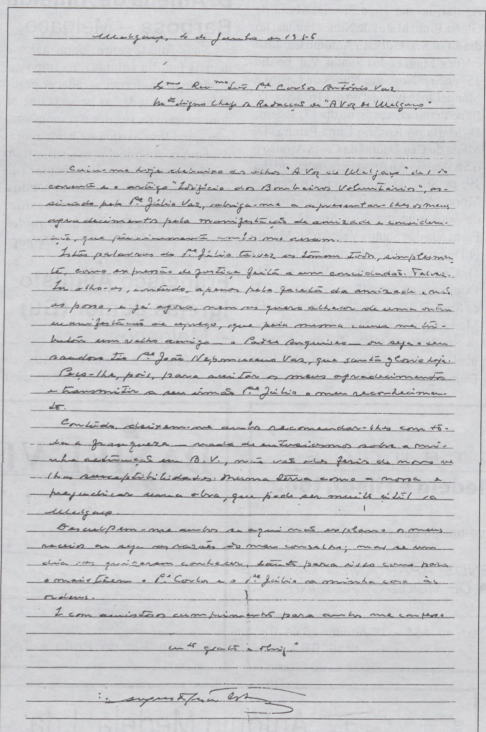 Melgaço, 4 de Junho de 19
Ex.mo Rev.mo Snr. P.e Carlos António Vaz
M.to digno Chefe de Redacção de "A Voz de Melgaço"
Caiu-me hoje debaixo dos olhos "A Voz de Melgaço" de 1 do
corrente e o artigo "Edifício dos Bombeiros Voluntários", as-
sinado pelo P.e Júlio Vaz, obriga-me a apresentar-lhes os meus
agradecimentos pela manifestação de amizade e consider-
ação, que ambos me deram.
Estas palavras do P.e Júlio talvez as tomem todos, simplesmen-
te, como expressão de justiça feita a um concidadão. Talvez.
Eu olho-as, contudo, apenas pela faceta da amizade e não
as posso, e já agora, nem as quero alhear de uma outra
manifestação de apreço, que pela mesma causa me tri-
butou um velho amigo — o Padre Arquivista — ou seja o seu
saudoso tio P.e João Nepomuceno Vaz, que santa glória haja.
Peço-lhe, pois, para aceitar os meus agradecimentos
e transmitir a seu irmão P.e Júlio o meu reconhecimen-
to.
Contudo, deixem-me ambos recomendar-lhes com tô-
da a franqueza — nada de entusiasmos sobre a mi-
nha actuação em B.V., não vão eles ferir de novo ve-
lhas susceptibilidades numa terra como a nossa e
prejudicar uma obra, que pode ser muito útil a
Melgaço.
Desculpem-me ambos se aqui não explano os meus
receios ou seja as razões do meu conselho; mas se um
dia as quiserem conhecer, tanto para isso como para
o mais têem o P.e Carlos e o P.e Júlio a minha casa às
ordens.
E com amistosos cumprimentos para ambos me confesso
m.to grato e obrig.o